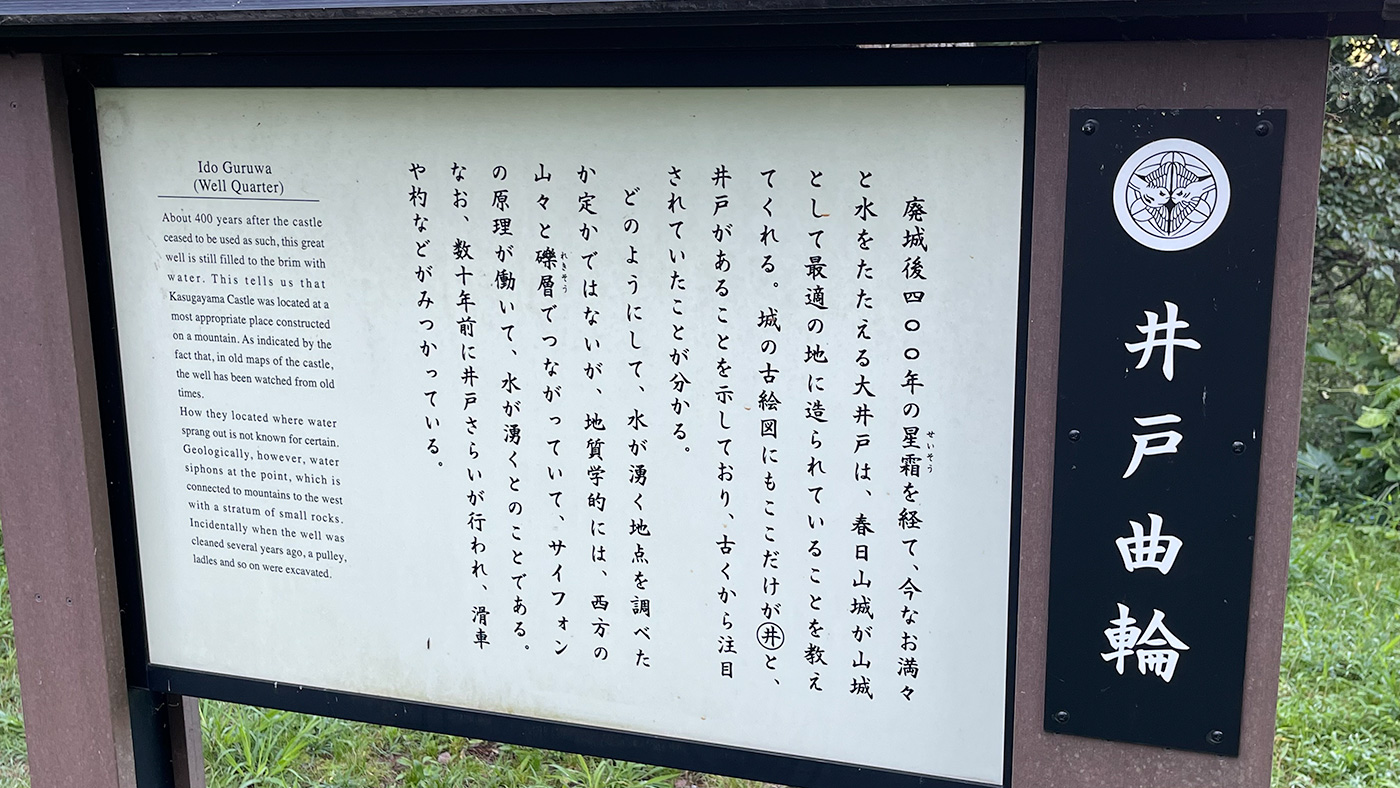 井戸曲輪
廃城後四〇〇年の星霜を経て、今なお満々
せいそう
と水をたたえる大井戸は、春日山城が山城
として最適の地に造られていることを教え
てくれる。城の古絵図にもここだけが㊌と、
井戸があることを示しており、古くから注目
されていたことが分かる。
どのようにして、水が湧く地点を調べた
か定かではないが、地質学的には、西方の
山々と礫層でつながっていて、サイフォン
れきそう
の原理が働いて、水が湧くとのことである。
なお、数十年前に井戸さらいが行われ、滑車
や杓などがみつかっている。
Ido Guruwa
(Well Quarter)
About 400 years after the castle
ceased to be used as such, this great
well is still filled to the brim with
water. This tells us that
Kasugayama Castle was located at a
most appropriate place constructed
on a mountain. As indicated by the
fact that, in old maps of the castle,
the well has been watched from old
times.
How they located where water
sprang out is not known for certain.
Geologically, however, water
siphons at the point, which is
connected to mountains to the west
with a stratum of small rocks.
Incidentally when the well was
cleaned several years ago, a pulley,
ladles and so on were excavated.